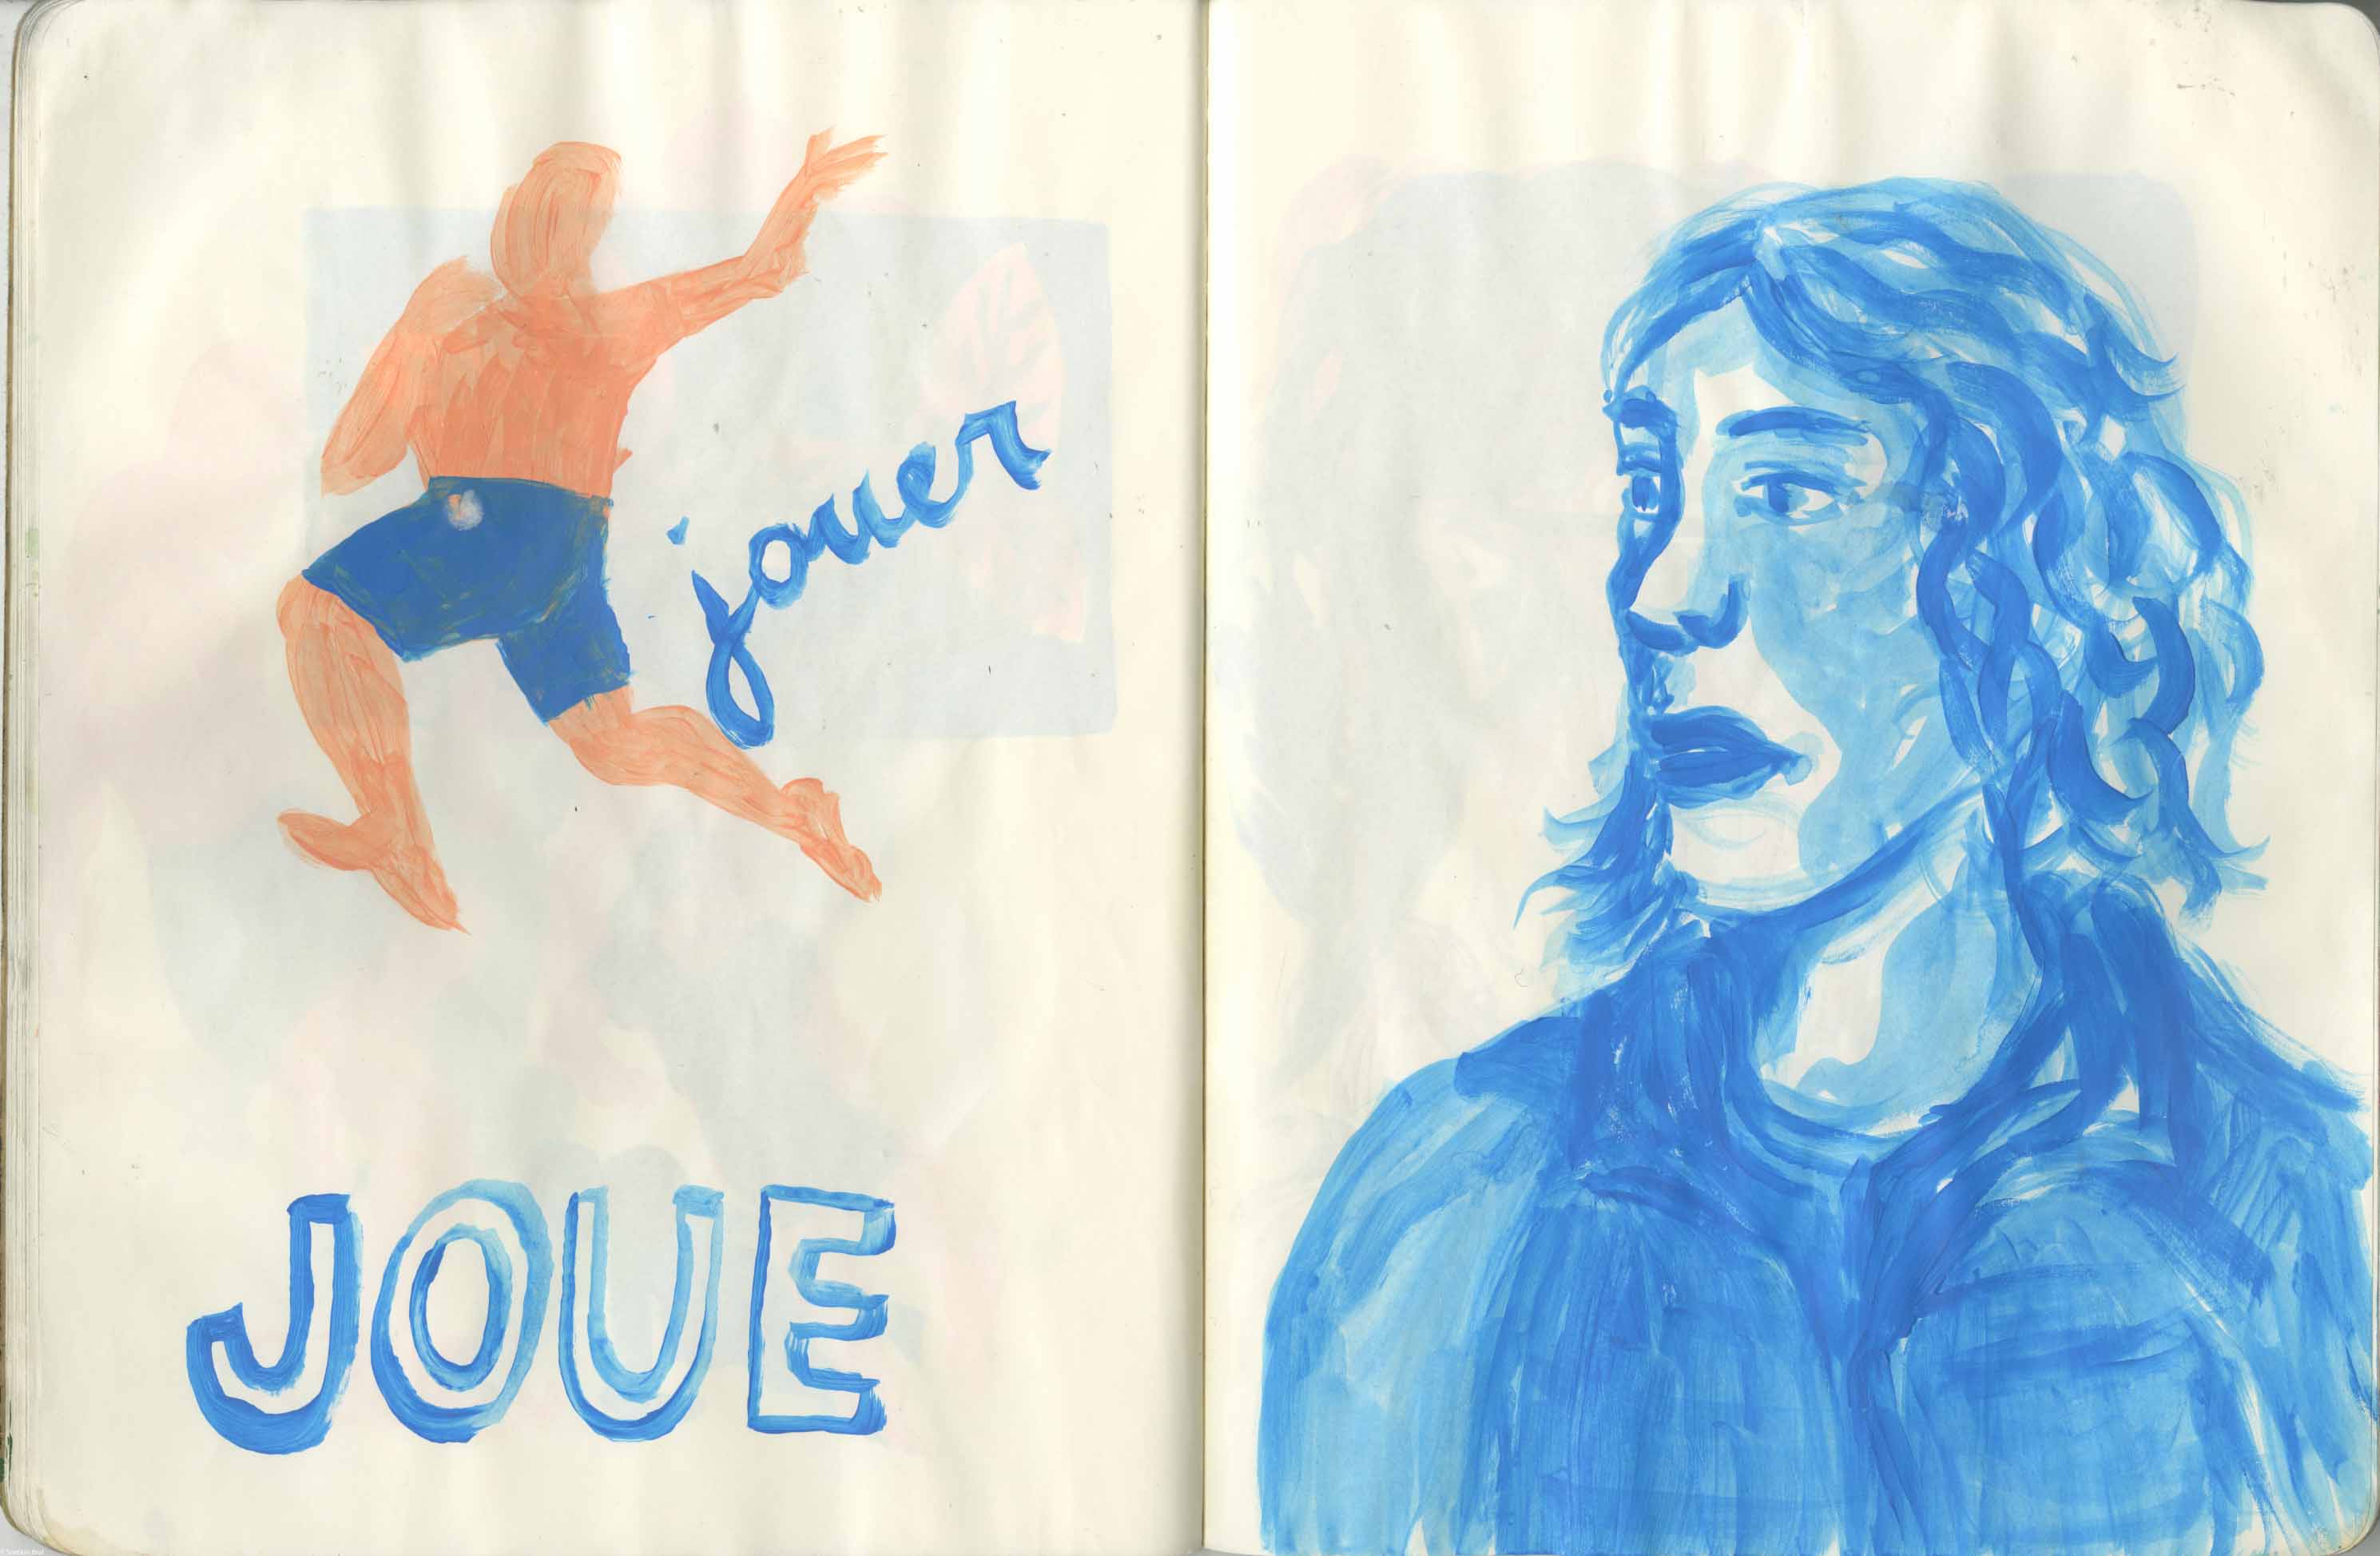 jouer
JOUE